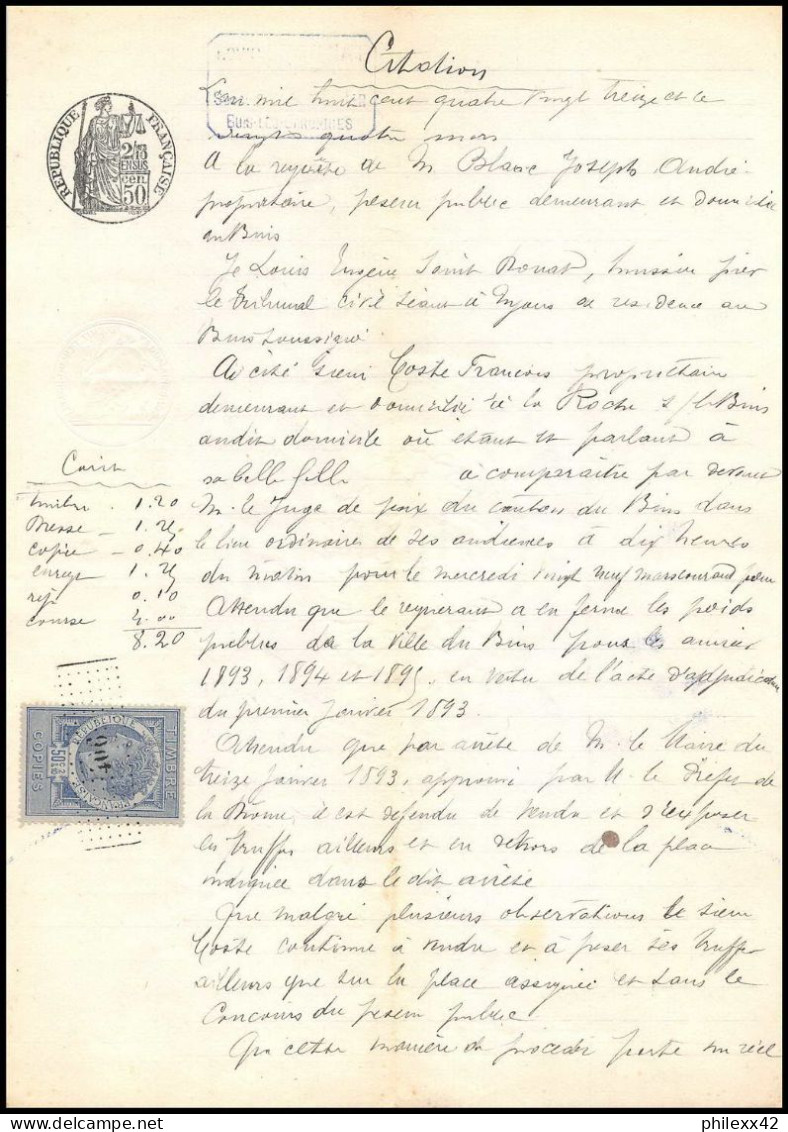 Citation
L'an mil huit cent quatre vingt treize et le
vingt quatre mars
A la requête de M. Blanc Joseph André
propriétaire, peseur public demeurant et domicilié
au Buis
REPUBLIQUE FRANÇAISE
2/10 EN SUS
50 cent
Je Louis Eugène Bonat, huissier près
le tribunal civil séant à Nyons de résidence au
Buis soussigné
Ai cité Sieur Coste François propriétaire
demeurant et domicilié à la Roche s/ le Buis
audit domicile où étant et parlant à
sa belle fille à comparaître par devant
M. le Juge de paix du canton du Buis dans
le lieu ordinaire de ses audiences à dix heures
du matin pour le mercredi vingt neuf mars courant pour
Coût
timbre . 1.20
copie - 0.40
enreg 1.25
rép 0.10
course 4.00
8.20
Attendu que le requérant a en ferme les poids
publics de la Ville du Buis pour les années
1893, 1894 et 1895, en vertu de l'acte d'adjudication
du premier Janvier 1893.
Attendu que par arrêté de M. le Maire du
treize Janvier 1893, approuvé par M. le Préfet de
la Drome, il est défendu de vendre et d'exposer
les truffes ailleurs et en dehors de la place
indiquée dans le dit arrêté
TIMBRE
COPIES
REPUBLIQUE FRANÇAISE
50c
406
Que malgré plusieurs observations le sieur
Coste continue à vendre et à peser ses truffes
ailleurs que sur la place assignée et sans le
Concours du peseur public.
Que cette manière de procéder porte un réel
philexx42
www.delcampe.net